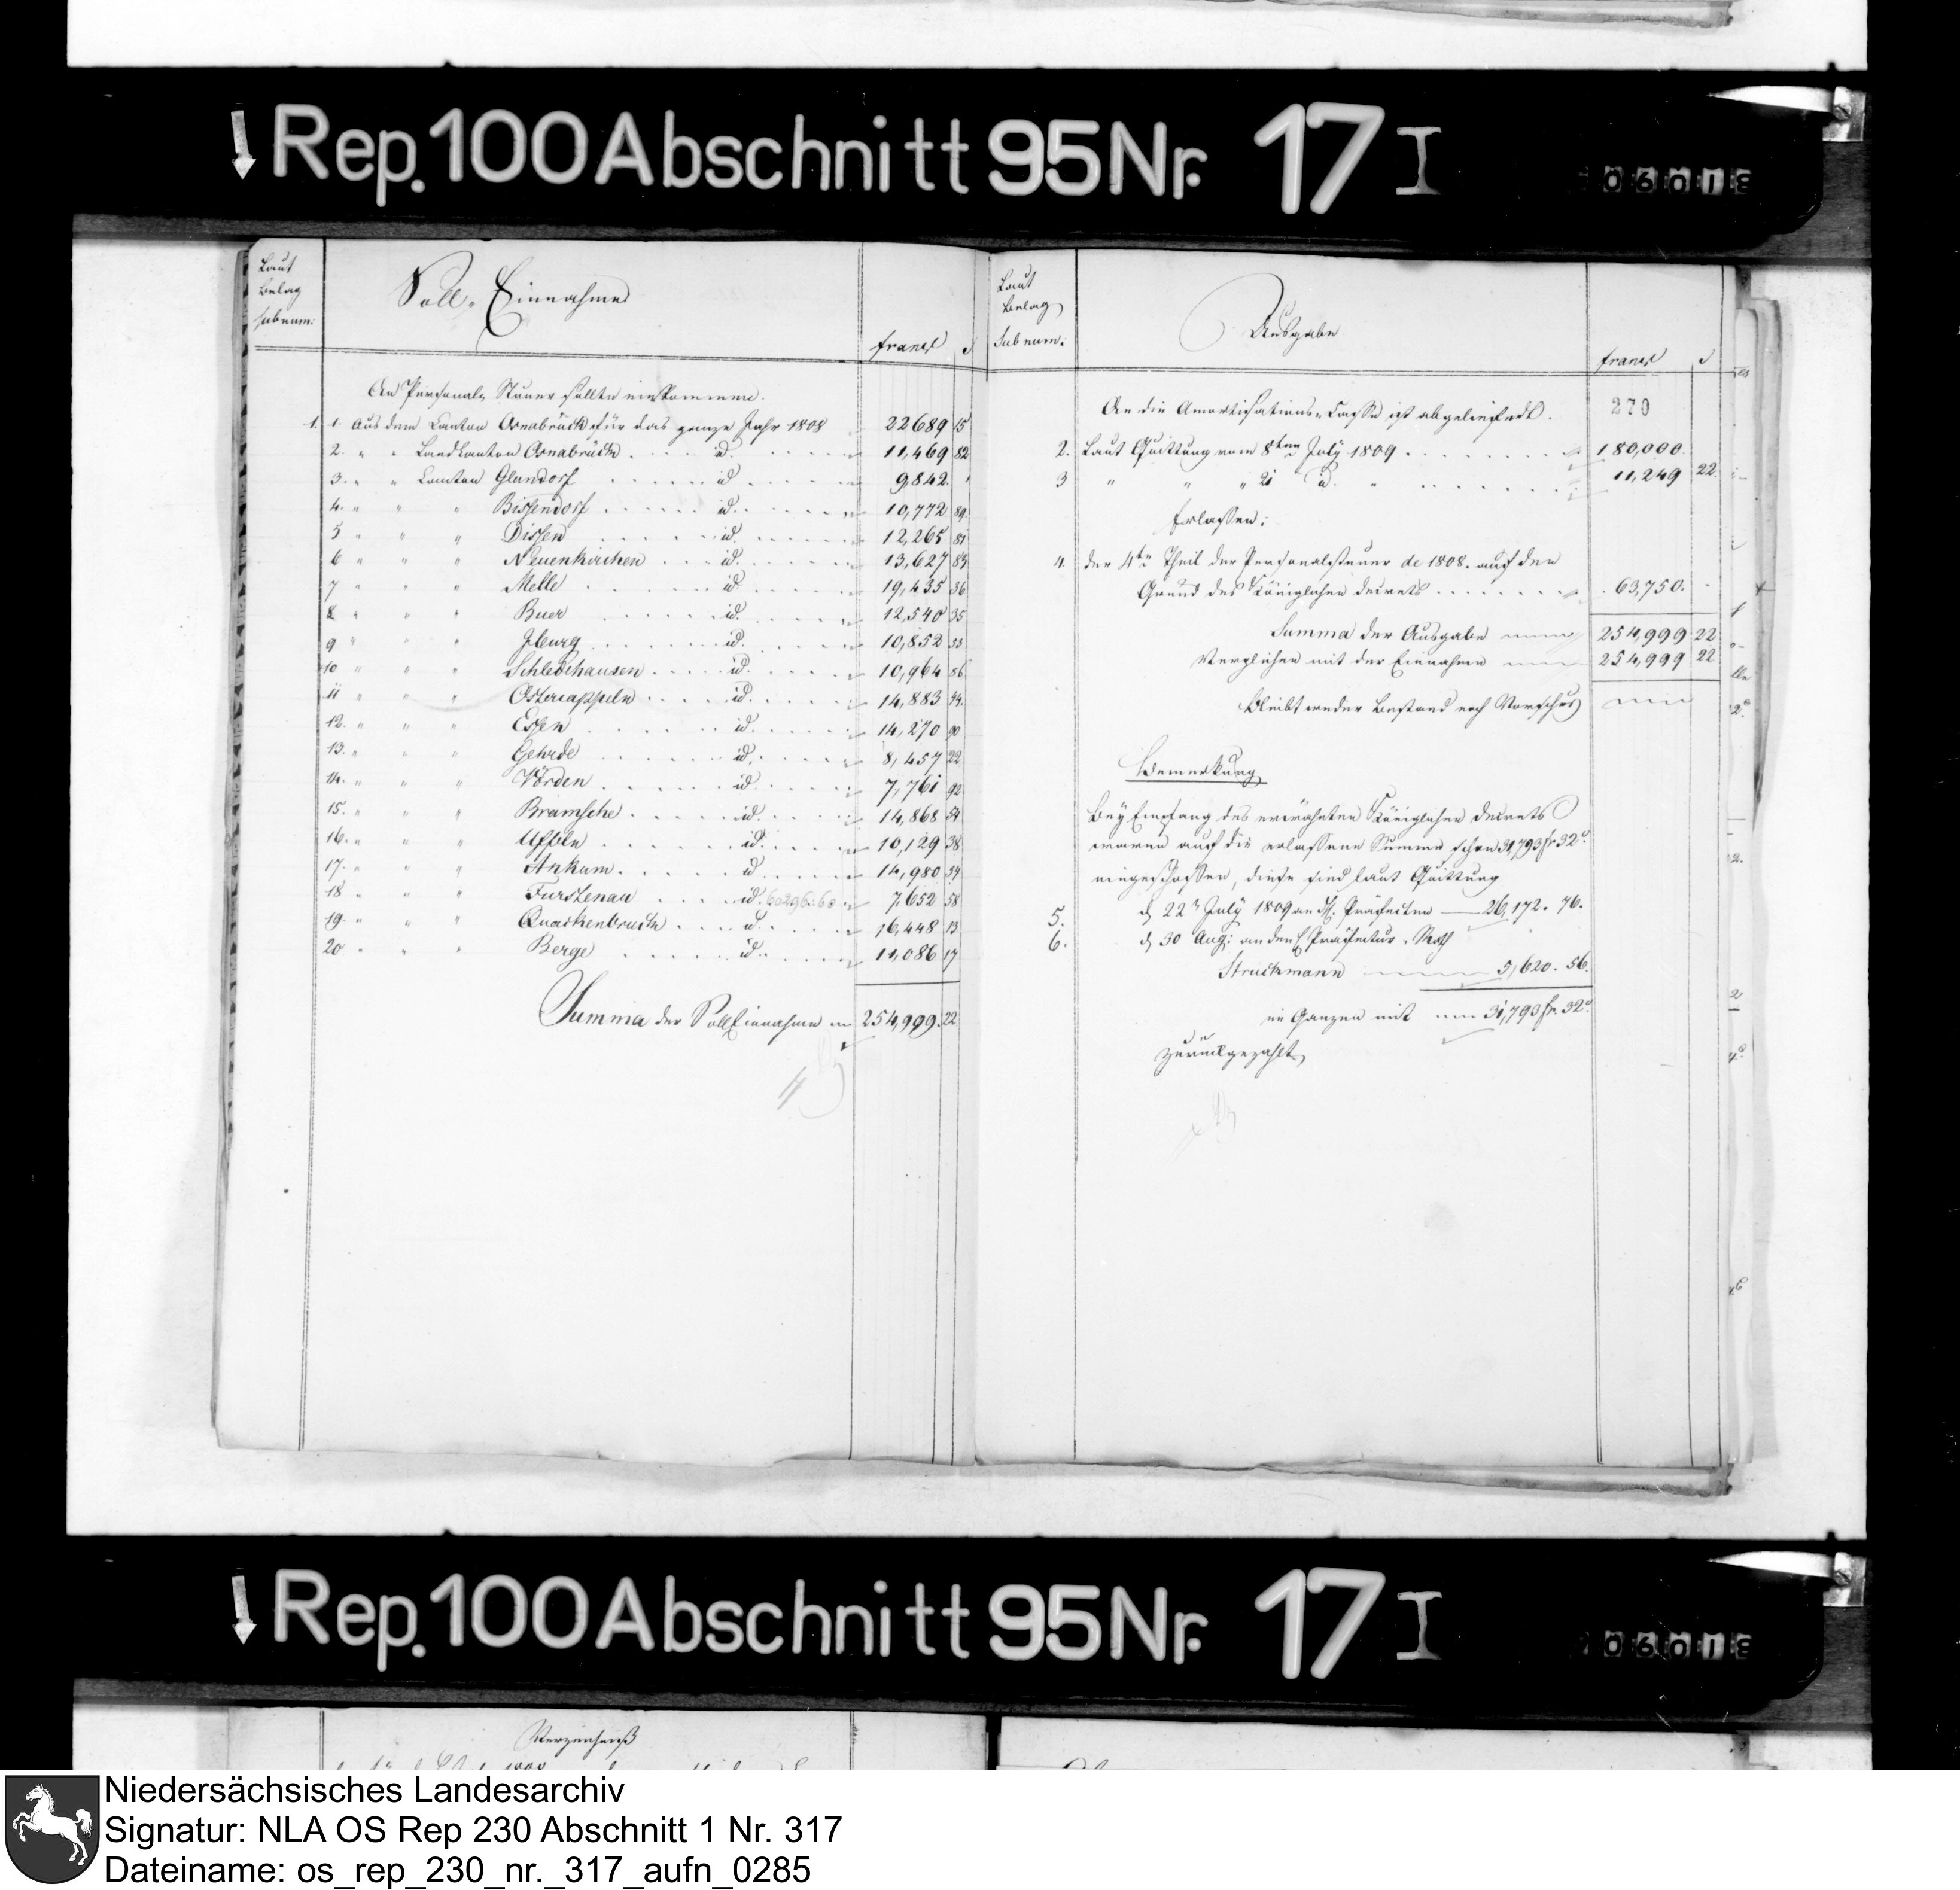 Rep. 100 Abschnitt 95 Nr. 17 I
Laut
Belag
subnum:
Soll-Einnahme
francs c
An Personal-Steuer sollte einkommen.
1. 1. Aus dem Canton Osnabrück für das ganze Jahr 1808 22689 15
2. " " Landkanton Osnabrück . . . id. . . . 11,469 82
3. " " Canton Glandorf . . . id . . . 9,842. "
4. " " " Bissendorf . . . id. . . . 10,772 89
5 " " " Dissen . . . id. . . . 12,265 81
6 " " " Neuenkirchen . . . id. . . . 13,627 83
7 " " " Melle . . . id. . . . 19,435 36
8 " " " Buer . . . id. . . . 12,540 35
9 " " " Iburg . . . id. . . . 10,852 33
10 " " " Schledehausen . . . id. . . . 10,964 86
11 " " " Ostercappeln . . . id. . . . 14,883 44.
12. " " " Essen . . . id. . . . 14,270 90
13. " " " Gehrde . . . id. . . . 8,457 22
14. " " " Vörden . . . id . . . 7,761 92
15. " " " Bramsche . . . id. . . . 14,868 54
16. " " " Uffeln . . . id. . . . 10,129 38
17. " " " Ankum . . . id . . . 14,980 34
18 " " " Furstenau . . . id. 60296.60 7,652 58
19. " " " Quackenbruck . . . id. . . . 16,448 13
20 " " " Berge . . . id. . . . 11,086 17
Summa der Soll Einnahme 254,999. 22
Laut
Belag
Subnum:
Ausgabe
francs c
270
An die Amortisations-Casse ist abgeliefert.
2. Laut Quittung vom 8ten July 1809 . . . 180,000.
3 " " " 21 id. " . . . 11,249 22.
Erlassen:
4. der 4te Theil der Personalsteuer de 1808. auf den
Grund des Königlichen Decrets . . . 63,750. -
Summa der Ausgabe 254,999 22
Verglichen mit der Einnahme 254,999 22
bleibt weder Bestand noch Vorschus
Bemerkung
Bey Empfang des erwähnten Königlichen Decrets
waren auf die erlassene Summe schon 31,793 fr 32 c.
eingeschossen, diese sind laut Quittung
5. d. 22n July 1809 an H. Präfecten 26,172. 76.
6. d. 30 Aug: an den H Präfectur-Rath
Struckmann 5,620. 56.
im Ganzen mit 31,793 fr. 32 c.
zurückgezahlt
Rep. 100 Abschnitt 95 Nr. 17 I
Verzeichniß
Niedersächsisches Landesarchiv
Signatur: NLA OS Rep 230 Abschnitt 1 Nr. 317
Dateiname: os_rep_230_nr._317_aufn_0285